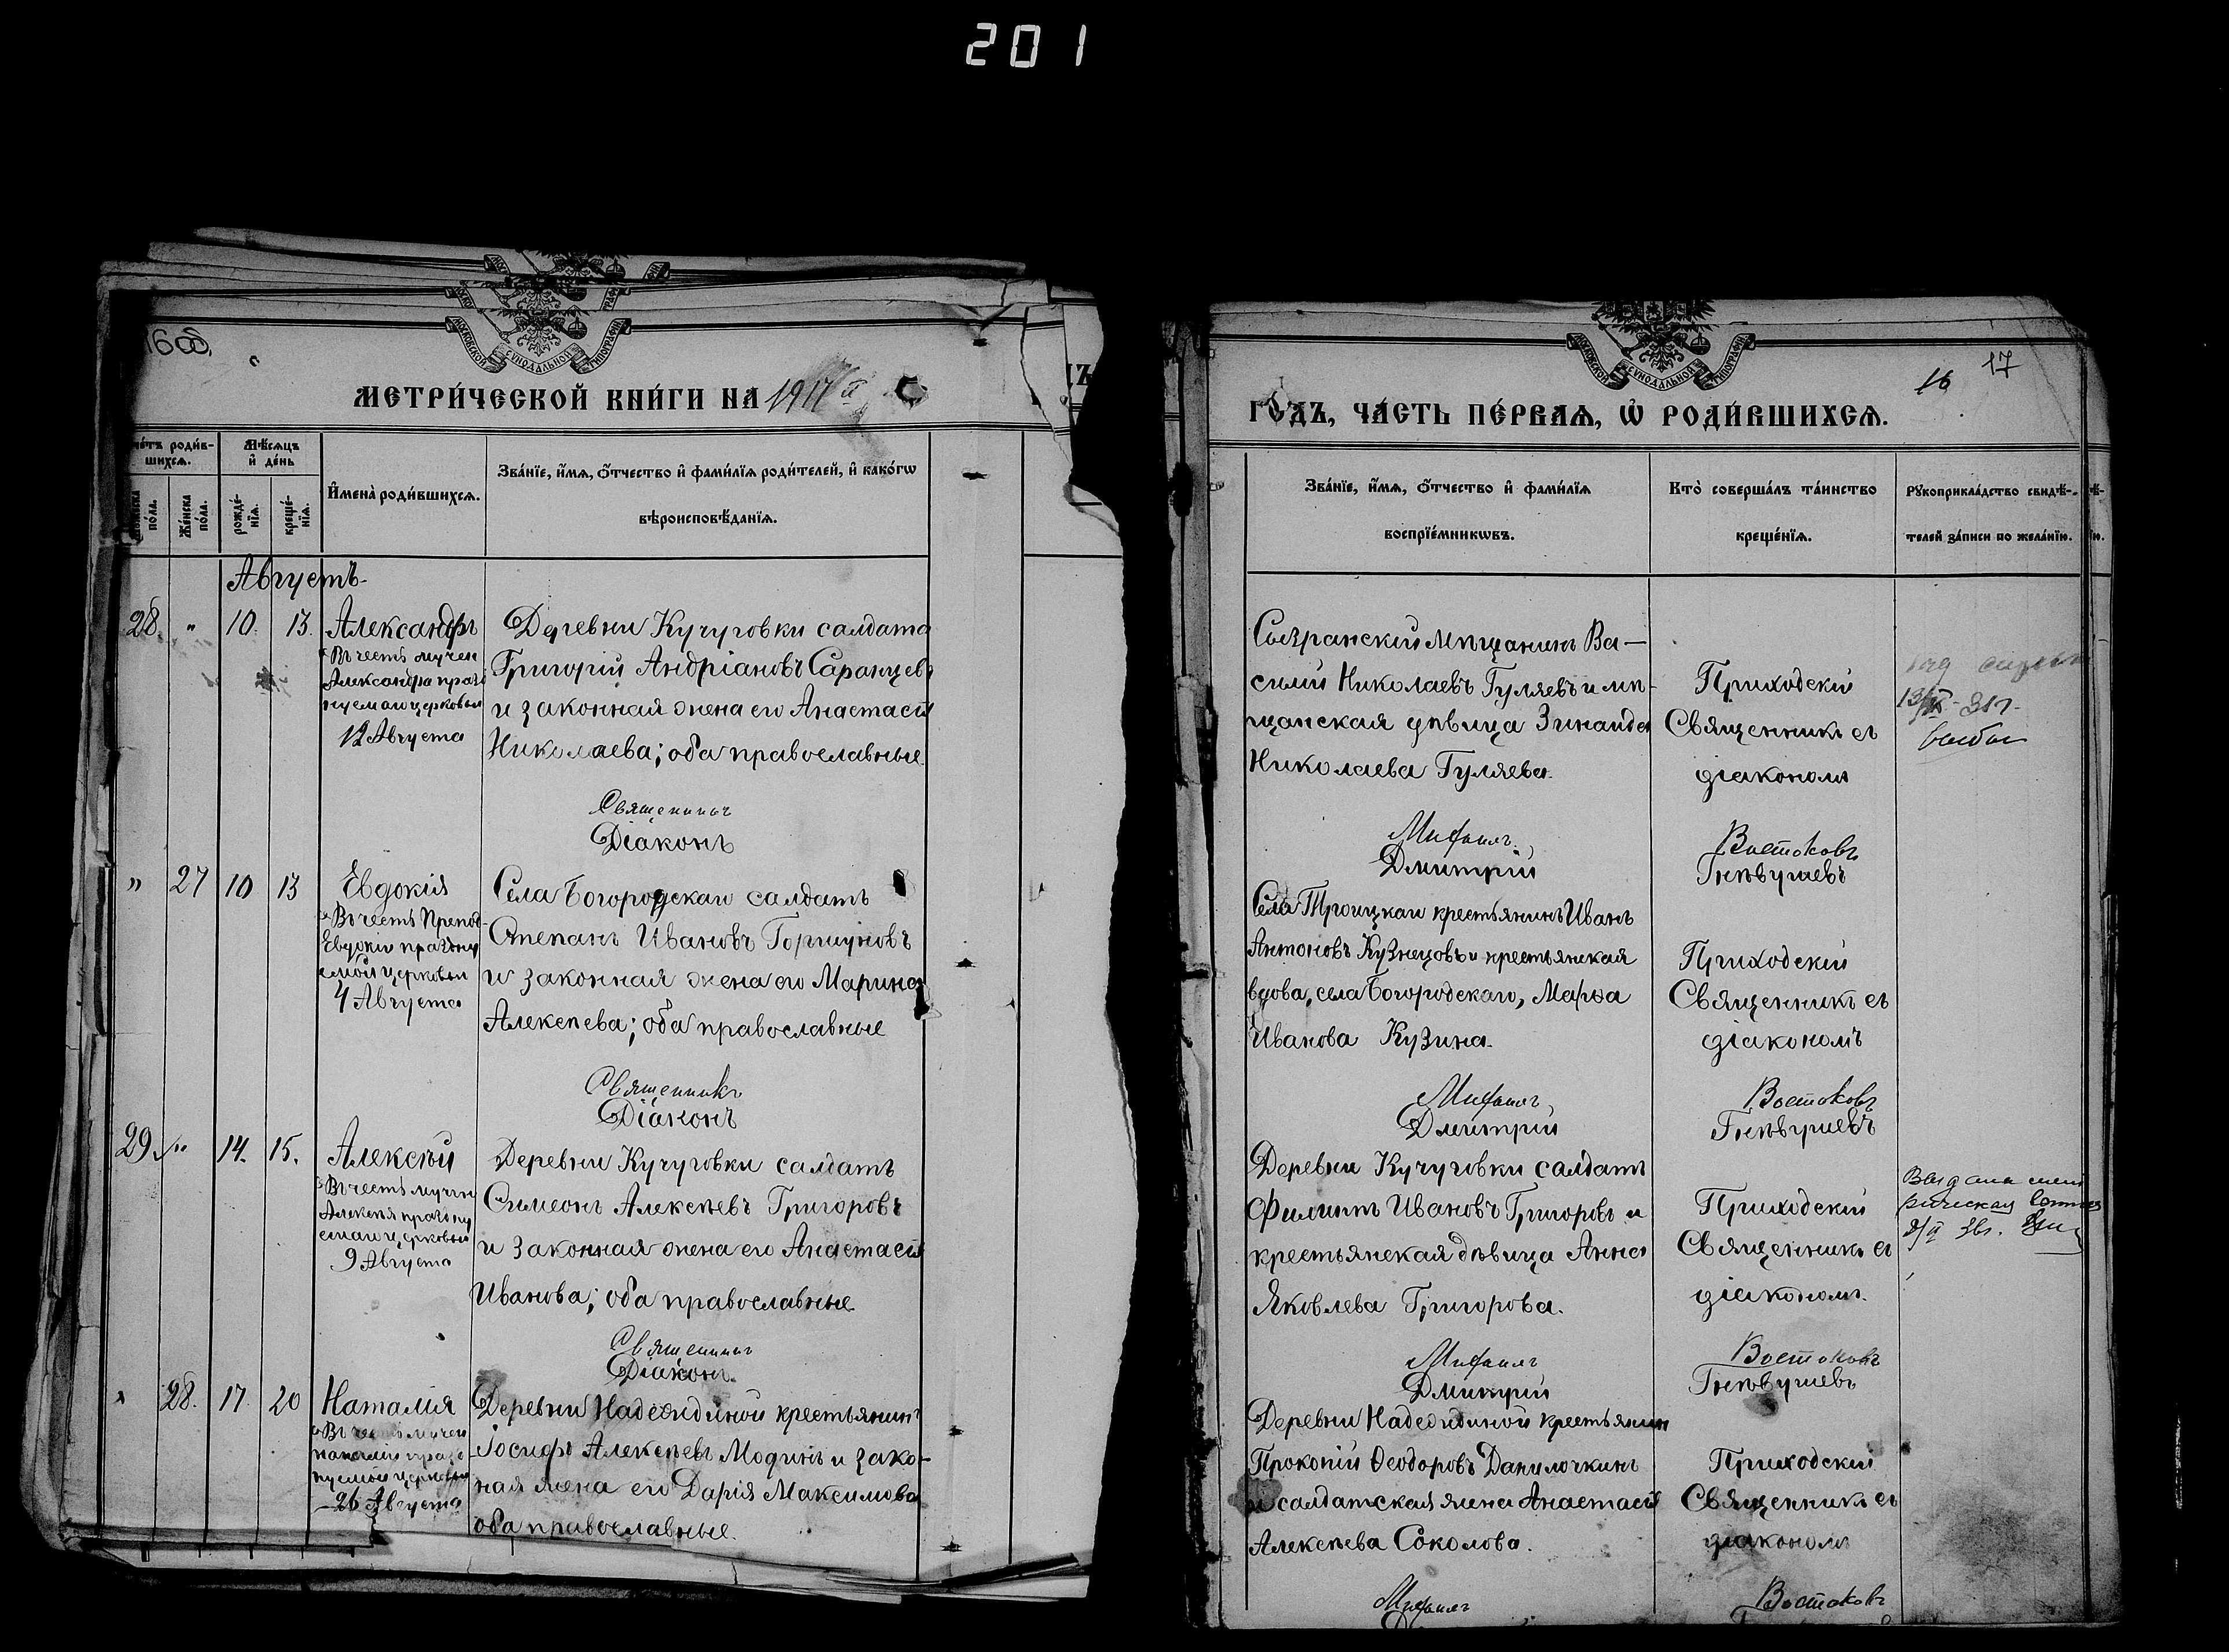 201
МОСКОВСКОЙ СѴНОДАЛЬНОЙ ТИПОГРАФІИ
МЕТРИ́ЧЕСКОЙ КНИ́ГИ НА 1917й
Сче́тъ роди́в-
шихсѧ.
Мѣ́сѧцъ
и҆ де́нь
Му́жеска
по́ла.
Же́нска
по́ла.
рожде́-
нїѧ.
креще́-
нїѧ.
И҆мена̀ роди́вшихсѧ.
Зва́нїе, и҆́мѧ, ѻ҆́тчество и҆ фами́лїѧ роди́телей, и҆ како́гѡ
вѣроисповѣ́данїѧ.
Августъ
28. " 10. 13. Александръ
Въ честь мучен
Александра праздн
уемаго церковью
12 Августа
Деревни Кучуговки салдатъ
Григорій Андріановъ Саранцевъ
и законная жена его Анастасія
Николаева; оба православные.
Священникъ
Діаконъ
" 27 10 13 Евдокія
Въ честь Препод
Евдокіи праздну
емой церковью
4 Августа
Села Богородскаго салдатъ
Степанъ Ивановъ Горшуновъ
и законная жена его Марина
Алексѣева; оба православные
Священникъ
Діаконъ
29. " 14. 15. Алексѣй
Въ честь мучен
Алексѣя праздну
емаго церковью
9 Августа
Деревни Кучуговки салдатъ
Симеонъ Алексѣевъ Григоровъ
и законная жена его Анастасія
Иванова; оба православные
Священникъ
Діаконъ.
" 28. 17. 20 Наталія
Въ честь мучен
Наталіи празд
нуемой церковью
26 Августа
Деревни Надеждиной крестьянинъ
Іосифъ Алексѣевъ Модинъ и зако-
ная жена его Дарія Максимова
оба православные.
МОСКОВСКОЙ СѴНОДАЛЬНОЙ ТИПОГРАФІИ
16 17
ГО́ДЪ, ЧА́СТЬ ПЕ́РВАѦ, Ѡ҆ РОДИ́ВШИХСѦ.
Зва́нїе, и҆́мѧ, ѻ҆́тчество и҆ фами́лїѧ
воспрїе́мникѡвъ.
Кто̀ соверша́лъ та́инство
креще́нїѧ.
Рꙋкоприкла́дство свидѣ́-
телей за́писи по жела́нїю.
Сызранскій мѣщанинъ Ва-
силій Николаевъ Гуляевъ и мѣ-
щанская дѣвица Зинаида
Николаева Гуляева.
Приходскій
Священникъ съ
діакономъ
Михаилъ Востоковъ
Дмитрій Гнѣвушевъ
Села Троицкаго крестьянинъ Иванъ
Антоновъ Кузнецовъ и крестьянская
вдова, села Богородскаго, Марѳа
Иванова Кузина.
Приходскій
Священникъ съ
діакономъ
Михаилъ Востоковъ
Дмитрій Гнѣвушевъ
Деревни Кучуговки салдатъ
Филиппъ Ивановъ Григоровъ и
крестьянская дѣвица Анна
Яковлева Григорова.
Приходскій
Священникъ съ
діакономъ.
Выдана мет
рическая
Михаилъ Востоковъ
Дмитрій Гнѣвушевъ
Деревни Надеждиной крестьянинъ
Прокопій Ѳеодоровъ Данилочкинъ
и салдатская жена Анастасія
Алексѣева Соколова.
Приходскій
Священникъ съ
діакономъ
Михаилъ Востоковъ